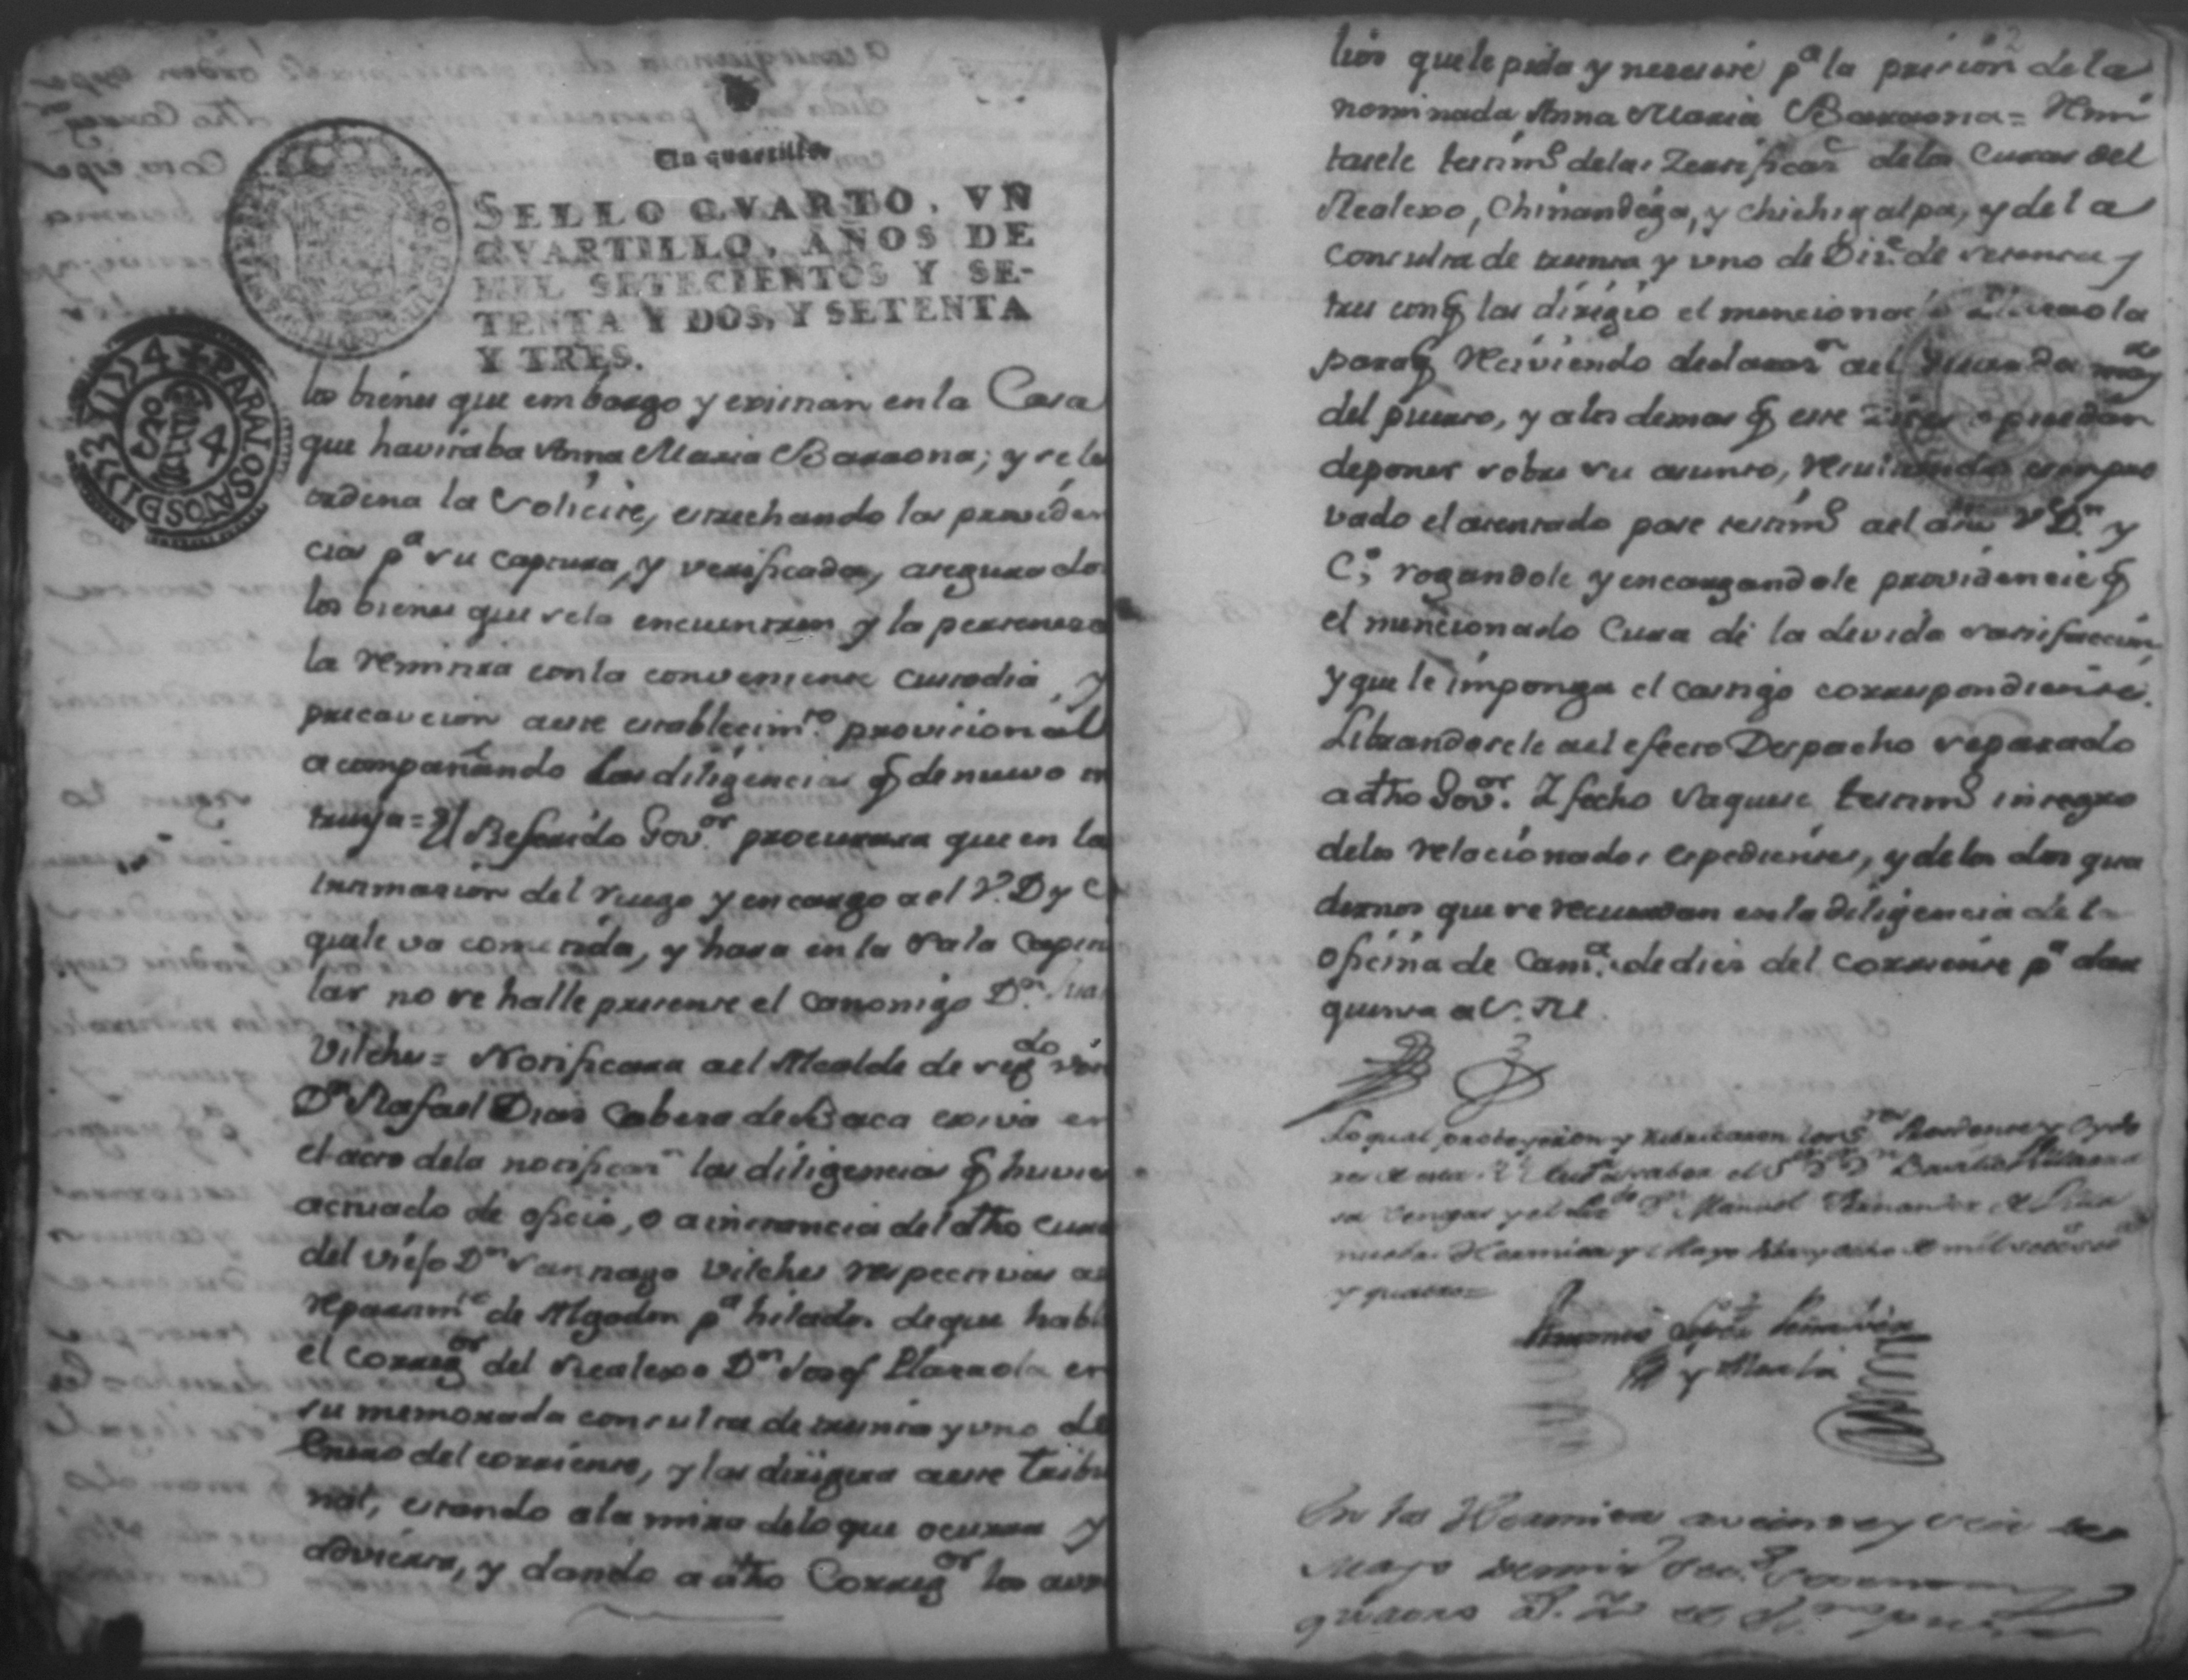 Un quartillo
SELLO QVARTO, VN
QVARTILLO, AÑOS DE
MIL SETECIENTOS Y SE-
TENTA Y DOS, Y SETENTA
Y TRES.
PARA LOS AÑOS D 1773 Y 1774
So 4
los biénes que embargo y existian en la Casa
que havitaba Anna Maria Baraona; y se le
ordena la solicite, estrechando las providen
cias pa su captura, y verificada, asegurado
los bienes que se la encuentren y la pertenezca
la remitira con la conveniente custodia, y
precaucion a este establecimto. provisional
acompañando las diligencias q de nuevo in
truya = El Referido Govor. procurara que en la
intimacion del ruego y encargo a el Ve. D y C
que le va cometida, y hara en la Sala Capitu
lar no se halle presente el canonigo Dn. Juan
Vilches = Notificara a el Alcalde de segdo
Dn Rafael Dias Cabesa de Baca exiva en
el acto de la notificaon las diligencias q huvie
actuado de oficio, o a instancia del dho cura
del viéjo Dn Santiago Vilches respectivas a
repartimto de Algodon pa hilados de que habla
el corregor del Realexo Dn Josef Plazaola en
su memorada consulta de treinta y uno de
Enero del corriénte, y las dirigira a este Tribu
nal, estando a la mira de lo que ocurra y
advierta, y dando a dho Corregor los auxi
lios que le pida y necesite pa la prision de la
nominada Anna Maria Baraona = Remi
tasele testimo de las Zertificas de los Curas del
Realexo, Chinandéga, y Chichigalpa, y de la
consulta de treinta y uno de Dize. de setenta y
tres con q las dirigio el mencionado Plazaola
para q Reciviendo declaraon a el
del puerto, y a los demas q este pueden
deponer sobre su asunto, resultando compro
vado el atentado pase testimo a el dho Ve. Dn. y
Co; rogandole y encargandole providéncie q
el mencionado Cura dé la devida satisfaccion,
y que le imponga el castigo correspondiente.
Librandosele a el efecto Despacho separado
a dho Govor. Y fecho saquese testimo integro
de los relacionados expedientes, y de los dos qua
dernos que se recuerdan en la diligencia de la
oficina de Cama. de dies del corriente pa dar
quenta a S. M.
Lo qual proveyeron y rubricaron los Sres Presidente y Oydo
res de esta Rl Auda a saber el Sor Dn Basilio Villarra
sa Vengas y el Lizdo Dn Manuel Fernandez de Villa
nueva. Hermita y Mayo diez y ocho de mil setecos setta
y quatro =
Antonio Lopez Peñalver
y Alcala
En la Hermita a veinte y seis de
Mayo de mil setecs. setenta y
quatro